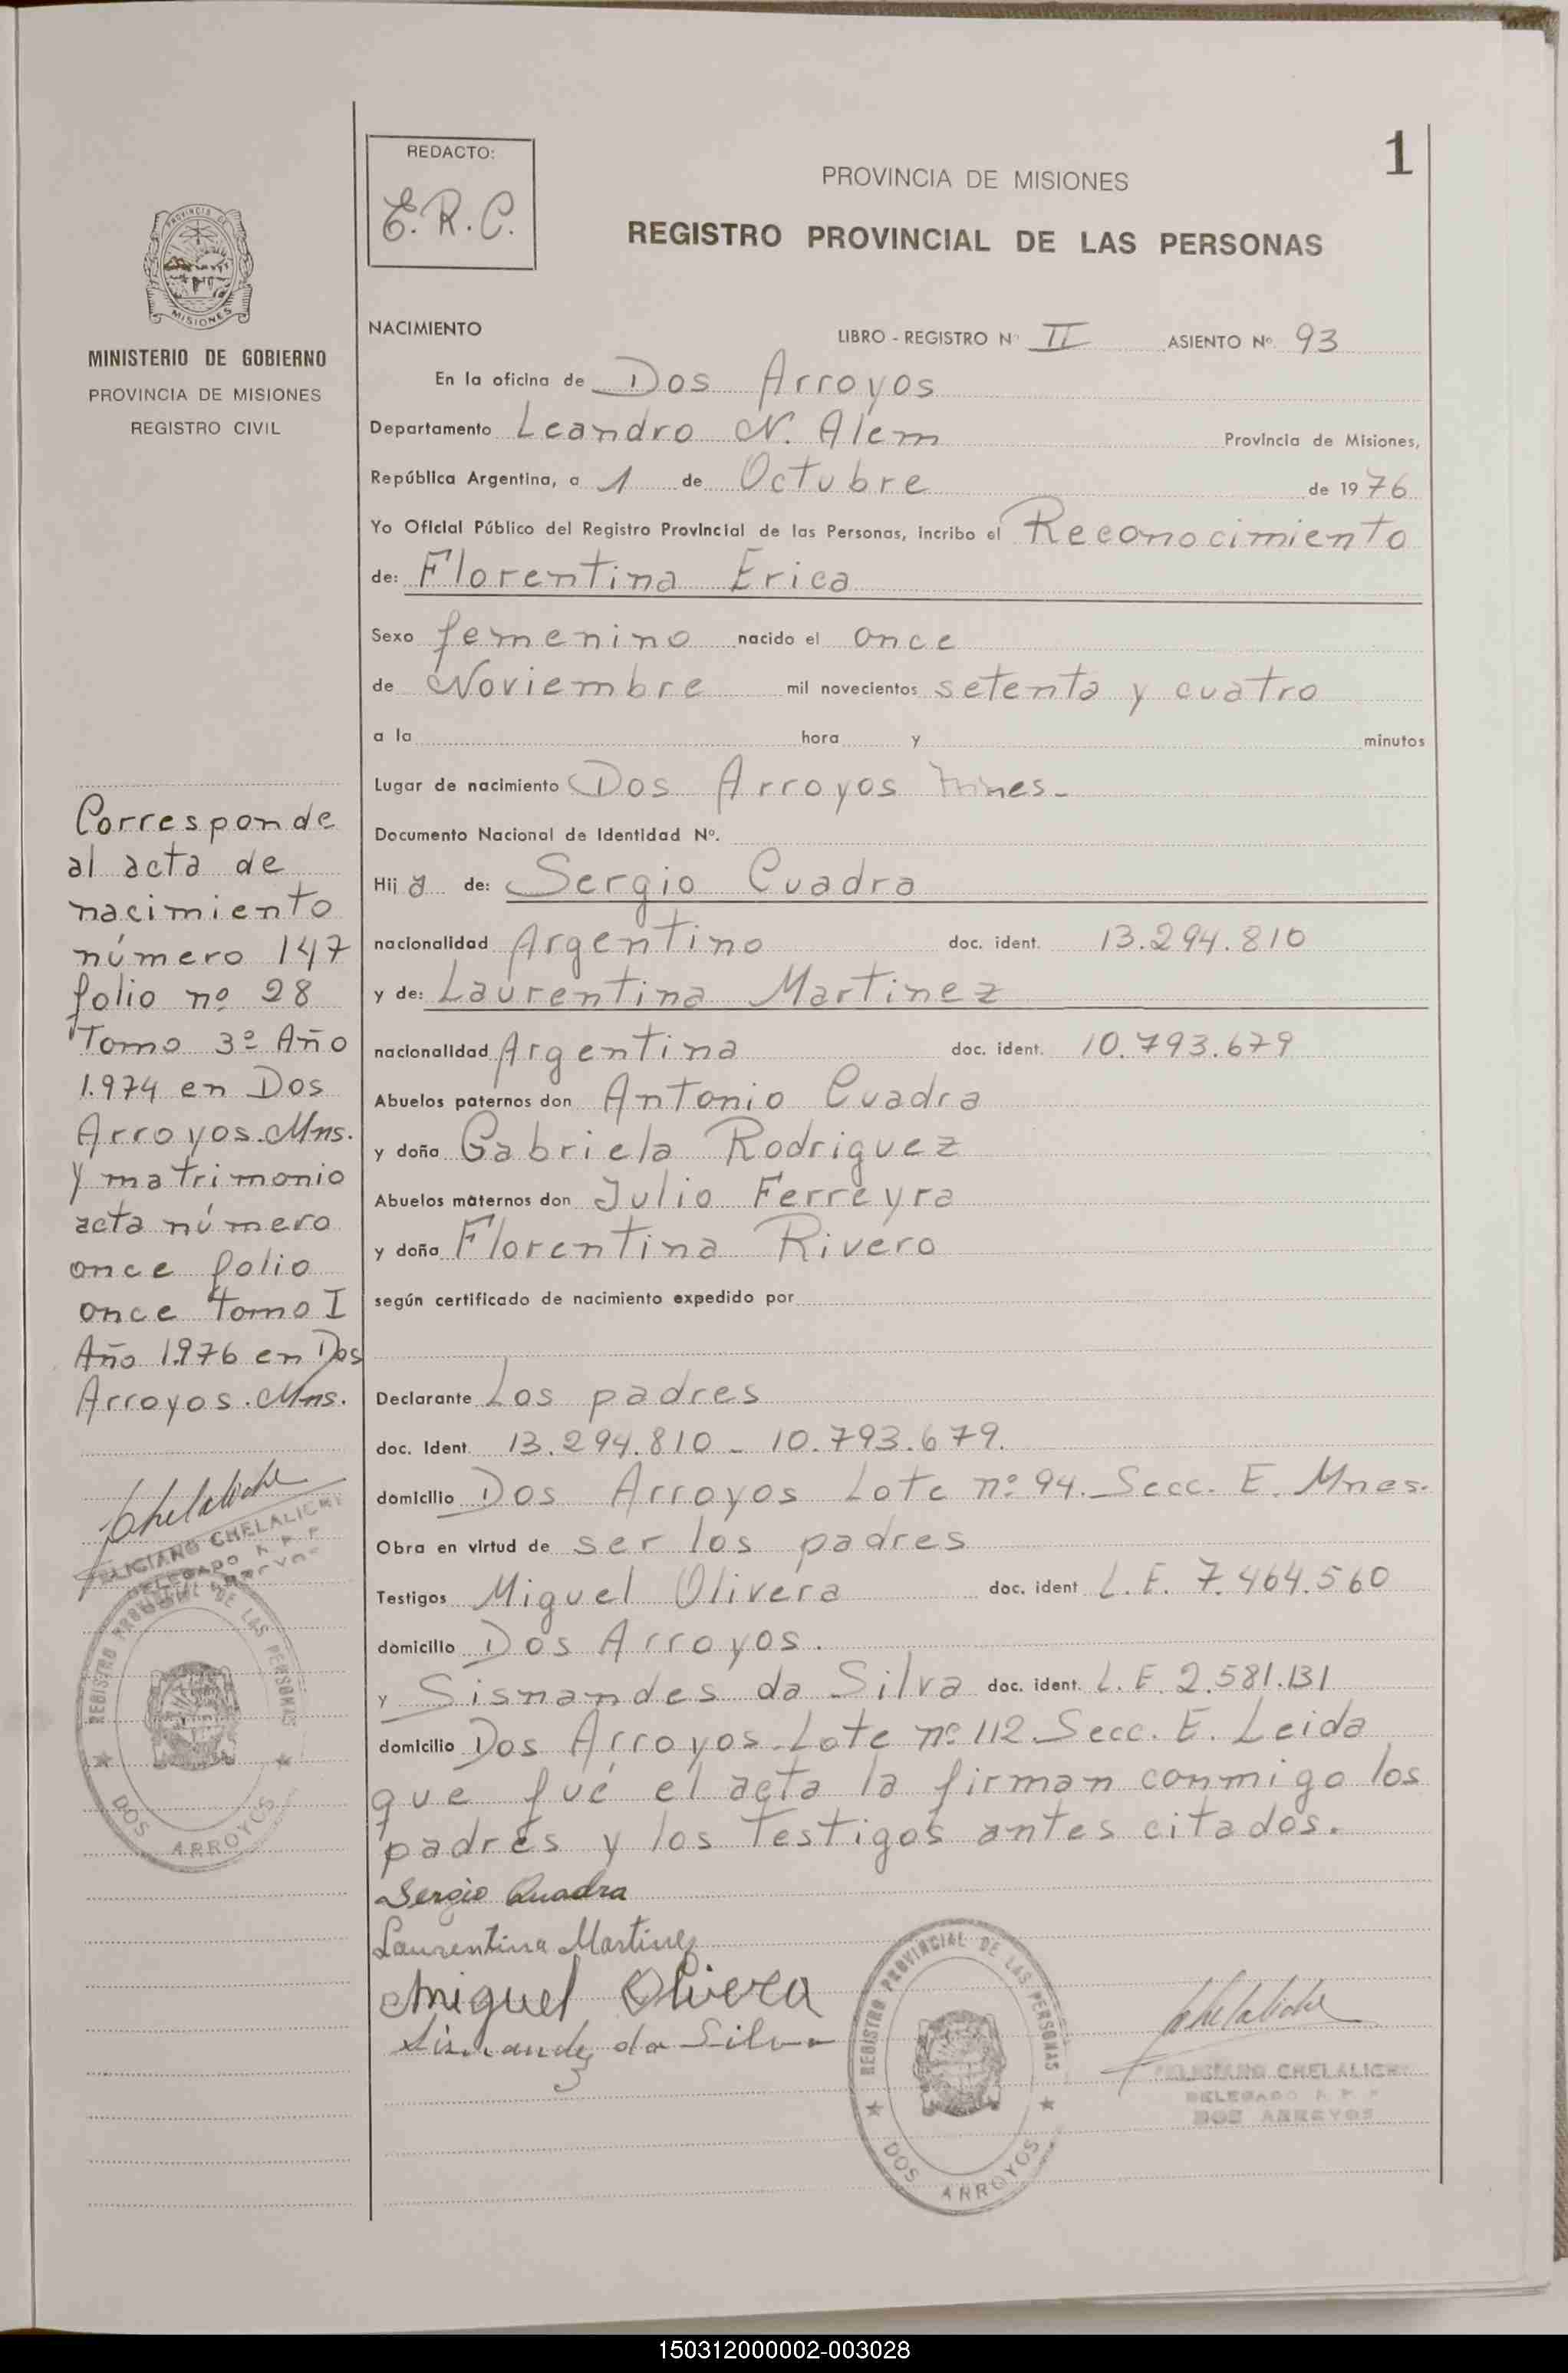 1
REDACTO:
E.R.C.
PROVINCIA DE MISIONES
REGISTRO PROVINCIAL DE LAS PERSONAS
PROVINCIA DE
MISIONES
MINISTERIO DE GOBIERNO
PROVINCIA DE MISIONES
REGISTRO CIVIL
NACIMIENTO LIBRO - REGISTRO Nº II ASIENTO Nº 93
En la oficina de Dos Arroyos
Departamento Leandro N. Alem Provincia de Misiones,
República Argentina, a 1 de Octubre de 1976
Yo Oficial Público del Registro Provincial de las Personas, incribo el Reconocimiento
de: Florentina Erica
Sexo femenino nacido el once
de Noviembre mil novecientos setenta y cuatro
a la hora y minutos
Lugar de nacimiento Dos Arroyos
Documento Nacional de Identidad Nº.
Hij a de: Sergio Cuadra
nacionalidad Argentino doc. ident. 13.294.810
y de: Laurentina Martinez
nacionalidad Argentina doc. ident. 10.793.679
Abuelos paternos don Antonio Cuadra
y doña Gabriela Rodriguez
Abuelos maternos don Julio Ferreyra
y doña Florentina Rivero
según certificado de nacimiento expedido por
Declarante Los padres
doc. Ident. 13.294.810 - 10.793.679.
domicilio Dos Arroyos Lote nº 94. Secc. E. Mnes.
Obra en virtud de ser los padres
Testigos Miguel Olivera doc. ident L.E. 7.464.560
domicilio Dos Arroyos.
y Sisnandes da Silva doc. ident. L.E. 2.581.131
domicilio Dos Arroyos Lote nº 112 Secc. E. Leida
que fué el acta la firman conmigo los
padres y los testigos antes citados.
Sergio Quadra
Laurentina Martinez
Miguel Olivera
Sisnandez da Silva
REGISTRO PROVINCIAL DE LAS PERSONAS
DOS ARROYOS
FELICIANO CHELALICHE
DELEGADO R P P
DOS ARROYOS
Corresponde
al acta de
nacimiento
número 147
folio nº 28
Tomo 3º Año
1.974 en Dos
Arroyos.Mns.
y matrimonio
acta número
once folio
once tomo I
Año 1976 en Dos
Arroyos.Mns.
FELICIANO CHELALICHE
DELEGADO R P P
DOS ARROYOS
REGISTRO PROVINCIAL DE LAS PERSONAS
DOS ARROYOS
150312000002-003028